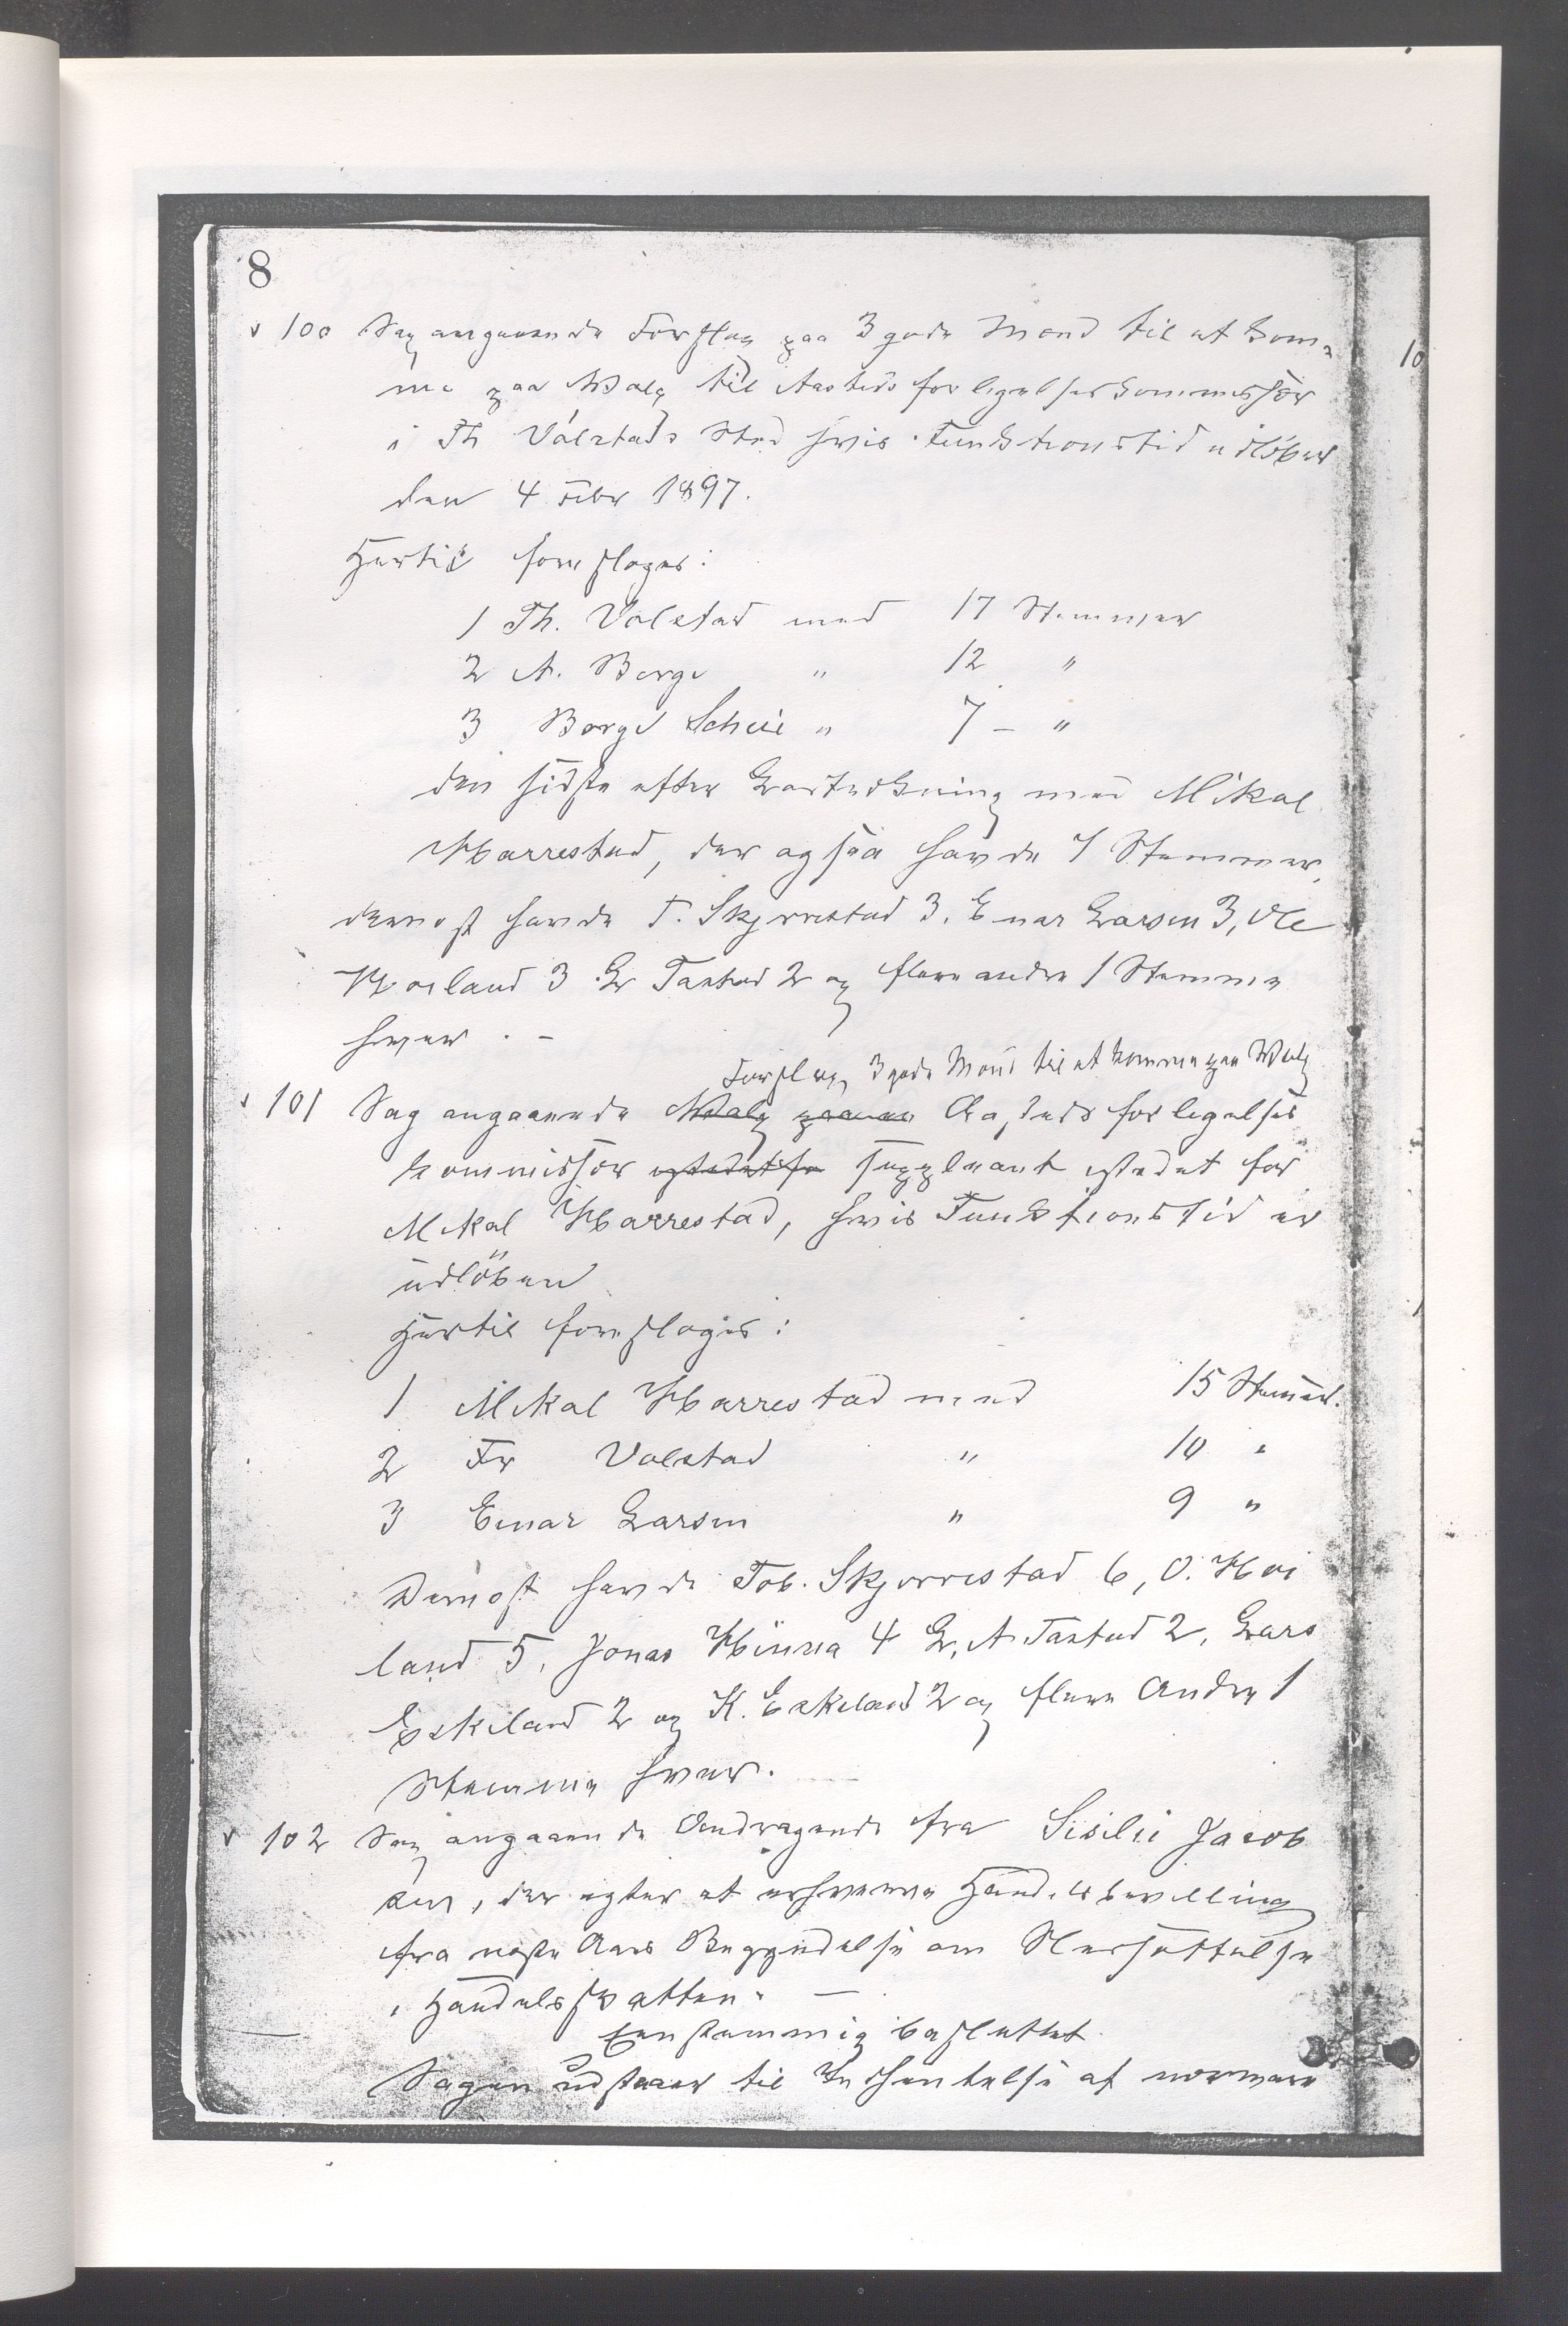 8
100 Sag angaaende Forslag paa 3 gode Mænd til at kom-
me paa Valg til Aastedsforligelseskommissær
i Th Volstads Sted hvis Funktionstid udløber
den 4 Febr 1897.
Hertil foresloges:
1 Th. Volstad med 17 Stemmer
2 A. Berge " 12 "
3 Børge Scheie " 7 - "
den sidste efter Lodtrækning med Mikal
Harrestad, der ogsaa havde 7 Stemmer,
dernæst havde T. Skjærrestad 3. Einar Larsen 3, Ole
Høiland 3 L Tastad 2 og flere andre 1 Stemme
hver. -
Forslag 3 gode Mænd til at komme paa Valg
101 Sag angaaende Valg Aastedsforligelses
kommissær suppleant istedet for
Mikal Harrestad, hvis Funktionstid er
udløben
Hertil foresloges:
1 Mikal Harrestad med 15 Stemmer.
2 Fr Volstad " 10 "
3 Einar Larsen " 9 "
Dernæst havde Tob. Skjærrestad 6, O. Høi
land 5, Jonas Hinna 4 L. A. Tastad 2, Lars
Eskeland 2 og K. Eskeland 2 og flere Andre 1
Stemme hver.
102 Sag angaaende Andragende fra Sisilie Jacob
sen, der agter at erhverve Handelsbevilling
fra næste Aars Begyndelse om Nedsættelse
i Handelsskatten. -
Eenstemmig besluttet
Sagen udstaaer til Indhentelse af nærmere
10